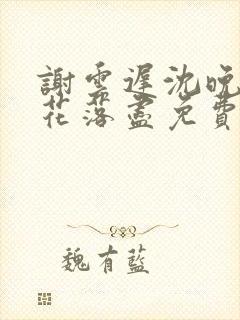 謝雲遲沈晚
花落盡免費
魏有藍